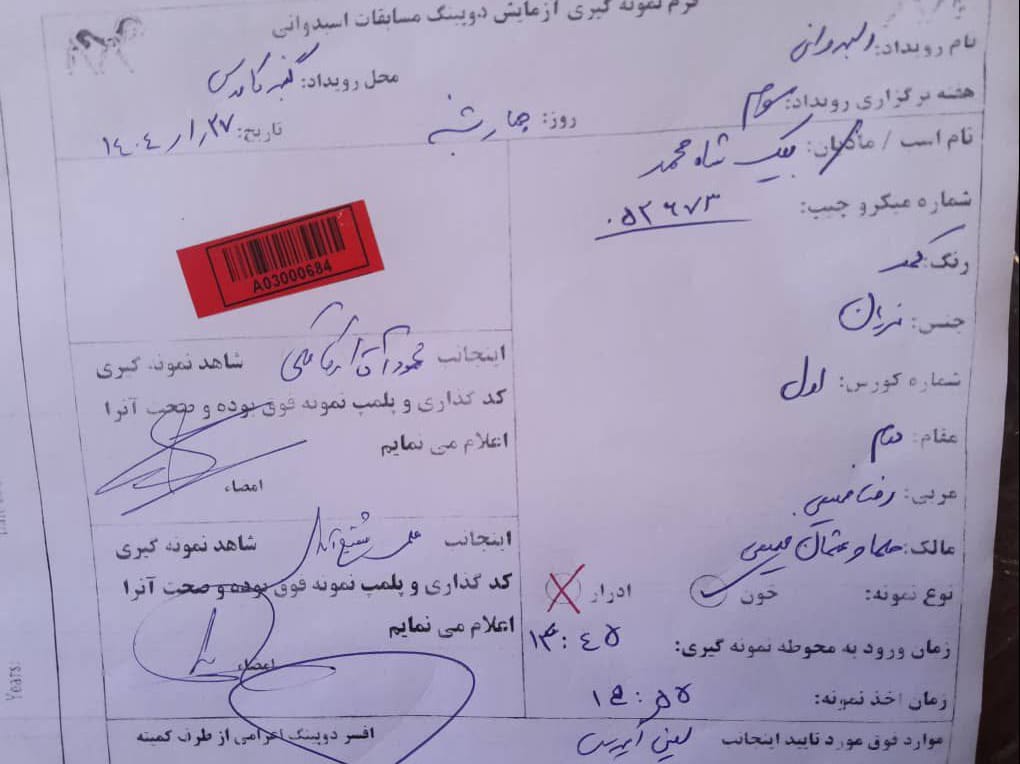 فرم نمونه گیری آزمایش دوپینگ مسابقات اسبدوانی
نام رویداد:
محل رویداد: گنبد کاووس
هفته برگزاری رویداد: سوم
روز: چهارشنبه
تاریخ: ۱۴۰۴/۱/۲۷
نام اسب / مادیان: بیک شاه محمد
شماره میکرو چیپ: ۰۵۲۶۷۳
رنگ:
جنس: نریان
شماره کورس: اول
مقام: دوم
مربی:
مالک:
نوع نمونه: خون ادرار
زمان ورود به محوطه نمونه گیری: ۱۴:۴۵
زمان اخذ نمونه: ۱۴:۵۵
موارد فوق مورد تایید اینجانب
A03000684
اینجانب محمود شاهد نمونه گیری
کد گذاری و پلمپ نمونه فوق بوده و صحت آنرا
اعلام می نمایم
امضاء
اینجانب علی شاهد نمونه گیری
کد گذاری و پلمپ نمونه فوق بوده و صحت آنرا
اعلام می نمایم
امضاء
افسر دوپینگ اعزامی از طرف کمیته
Years: